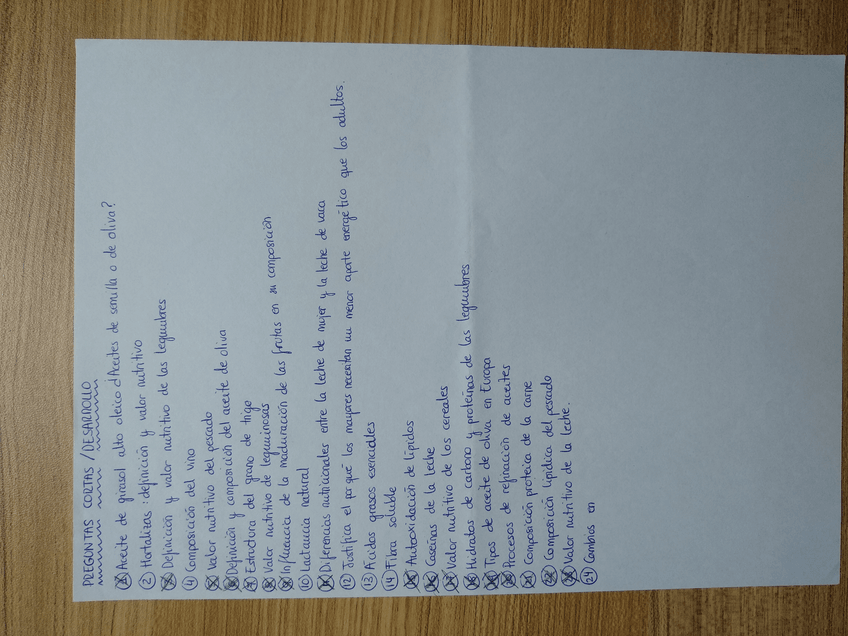 PREGUNTAS CORTAS / DESARROLLO
① Aceite de girasol alto oleico ¿Aceites de semilla o de oliva?
② Hortalizas: definición y valor nutritivo
③ Definición y valor nutritivo de las legumbres
④ Composición del vino
⑤ Valor nutritivo del pescado
⑥ Definición y composición del aceite de oliva
⑦ Estructura del grano de trigo
⑧ Valor nutritivo de leguminosas
⑨ Influencia de la maduración de las frutas en su composición
⑩ Lactancia natural
⑪ Diferencias nutricionales entre la leche de mujer y la leche de vaca
⑫ Justifica el porqué los mayores necesitan un menor aporte energético que los adultos.
⑬ Ácidos grasos esenciales
⑭ Fibra soluble
⑮ Autooxidación de lípidos
⑯ Caseínas de la leche
⑰ Valor nutritivo de los cereales
⑱ Hidratos de carbono y proteínas de las legumbres
⑲ Tipos de aceite de oliva en Europa
⑳ Procesos de refinación de aceites
㉑ Composición proteica de la carne
㉒ Composición lipídica del pescado
㉓ Valor nutritivo de la leche.
㉔ Cambios en